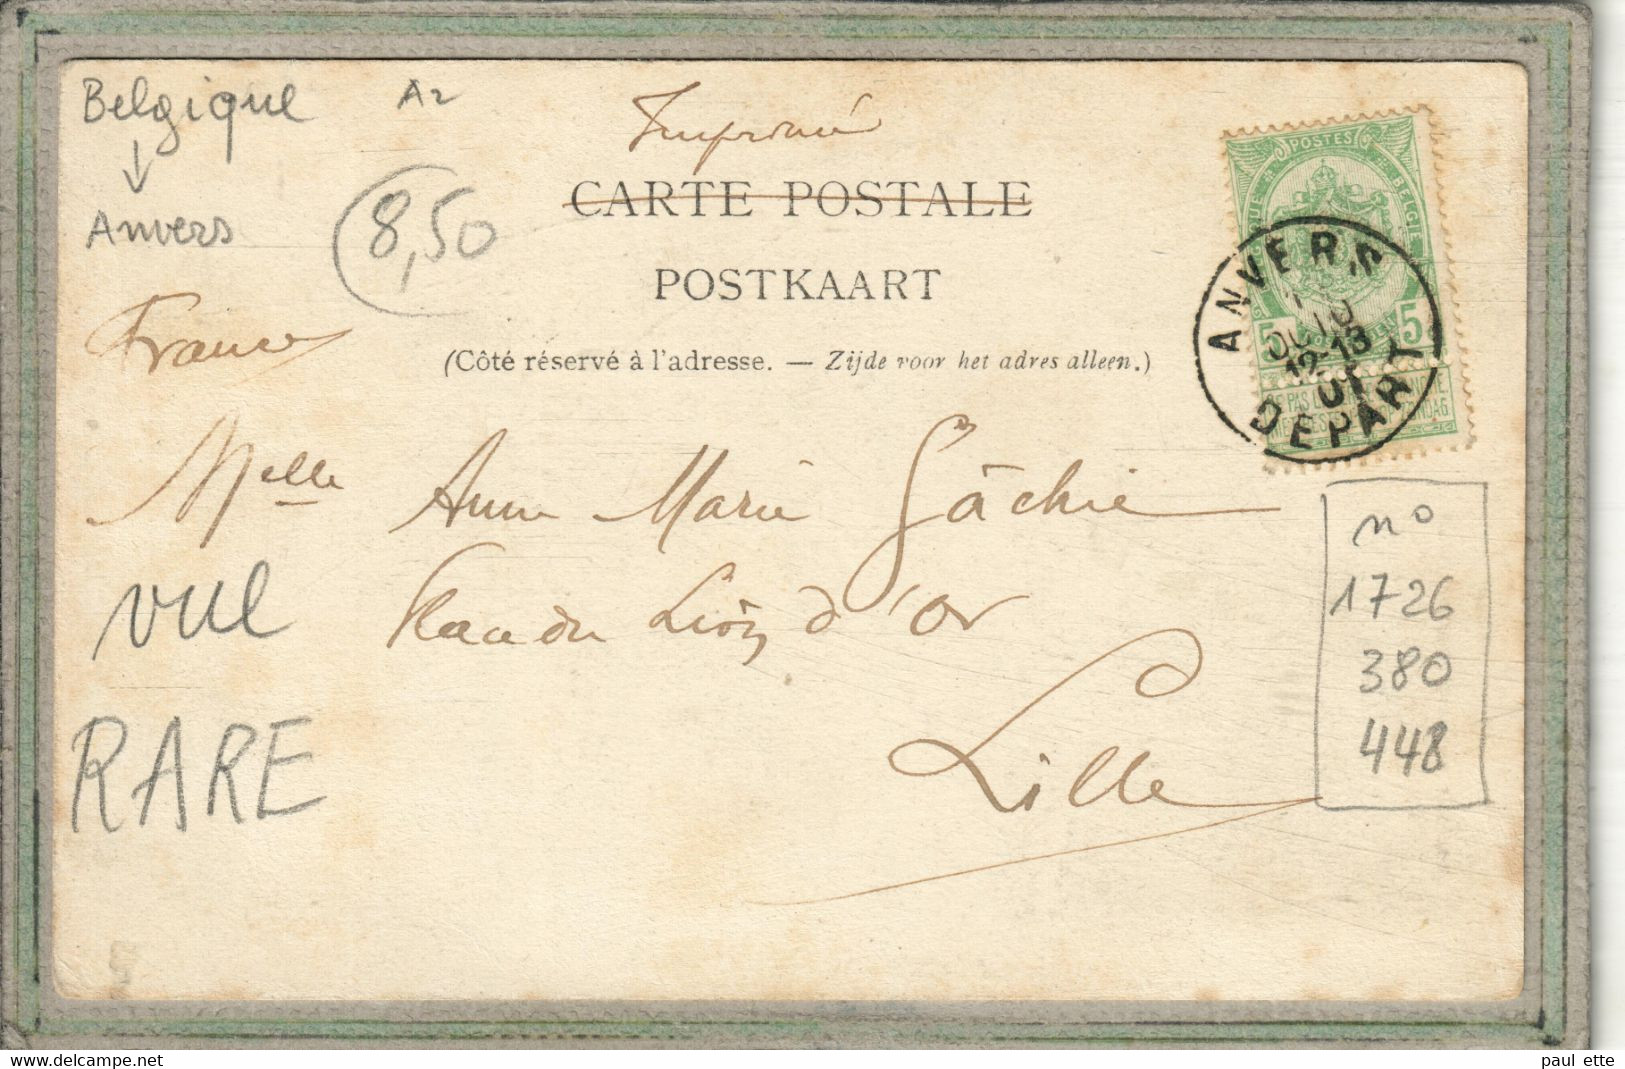 Belgique
A2
Anvers
8,50
Imprimé
CARTE POSTALE
POSTKAART
(Côté réservé à l'adresse. — Zijde voor het adres alleen.)
France
POSTES
BELGIE
5
5
ANVERS
12-13
01
DEPART
Melle Anne Marie Gâchie
Lion d'or
Lille
VUE
RARE
n°
1726
380
448
www.delcampe.net
paul ette